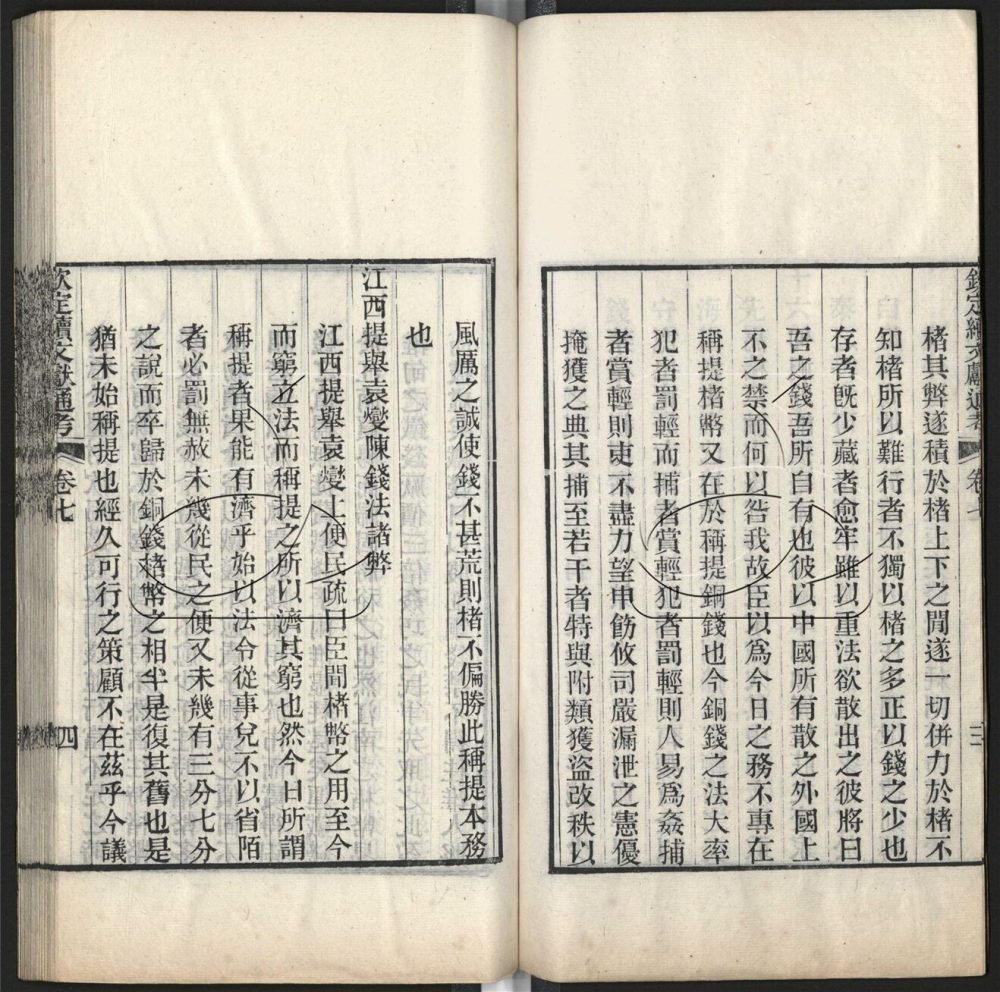 欽定續文獻通考 卷七 三
楮其弊遂積於楮上下之閒遂一切併力於楮不
知楮所以難行者不獨以楮之多正以錢之少也
存者旣少藏者愈牢雖以重法欲散出之彼將曰
吾之錢吾所自有也彼以中國所有散之外國上
不之禁而何以咎我故臣以爲今日之務不專在
稱提楮幣又在於稱提銅錢也今銅錢之法大率
犯者罰輕而捕者賞輕犯者罰輕則人易爲姦捕
者賞輕則吏不盡力望申飭攸司嚴漏泄之憲優
掩獲之典其捕至若干者特與附類獲盜改秩以
風厲之誠使錢不甚荒則楮不偏勝此稱提本務
也
江西提舉袁燮陳錢法諸弊
江西提舉袁燮上便民疏曰臣聞楮幣之用至今
而窮立法而稱提之所以濟其窮也然今日所謂
稱提者果能有濟乎始以法令從事兒不以省陌
者必罰無赦未幾從民之便又未幾有三分七分
之說而卒歸於銅錢楮幣之相半是復其舊也是
猶未始稱提也經久可行之策顧不在茲乎今議
欽定續文獻通考 卷七 四